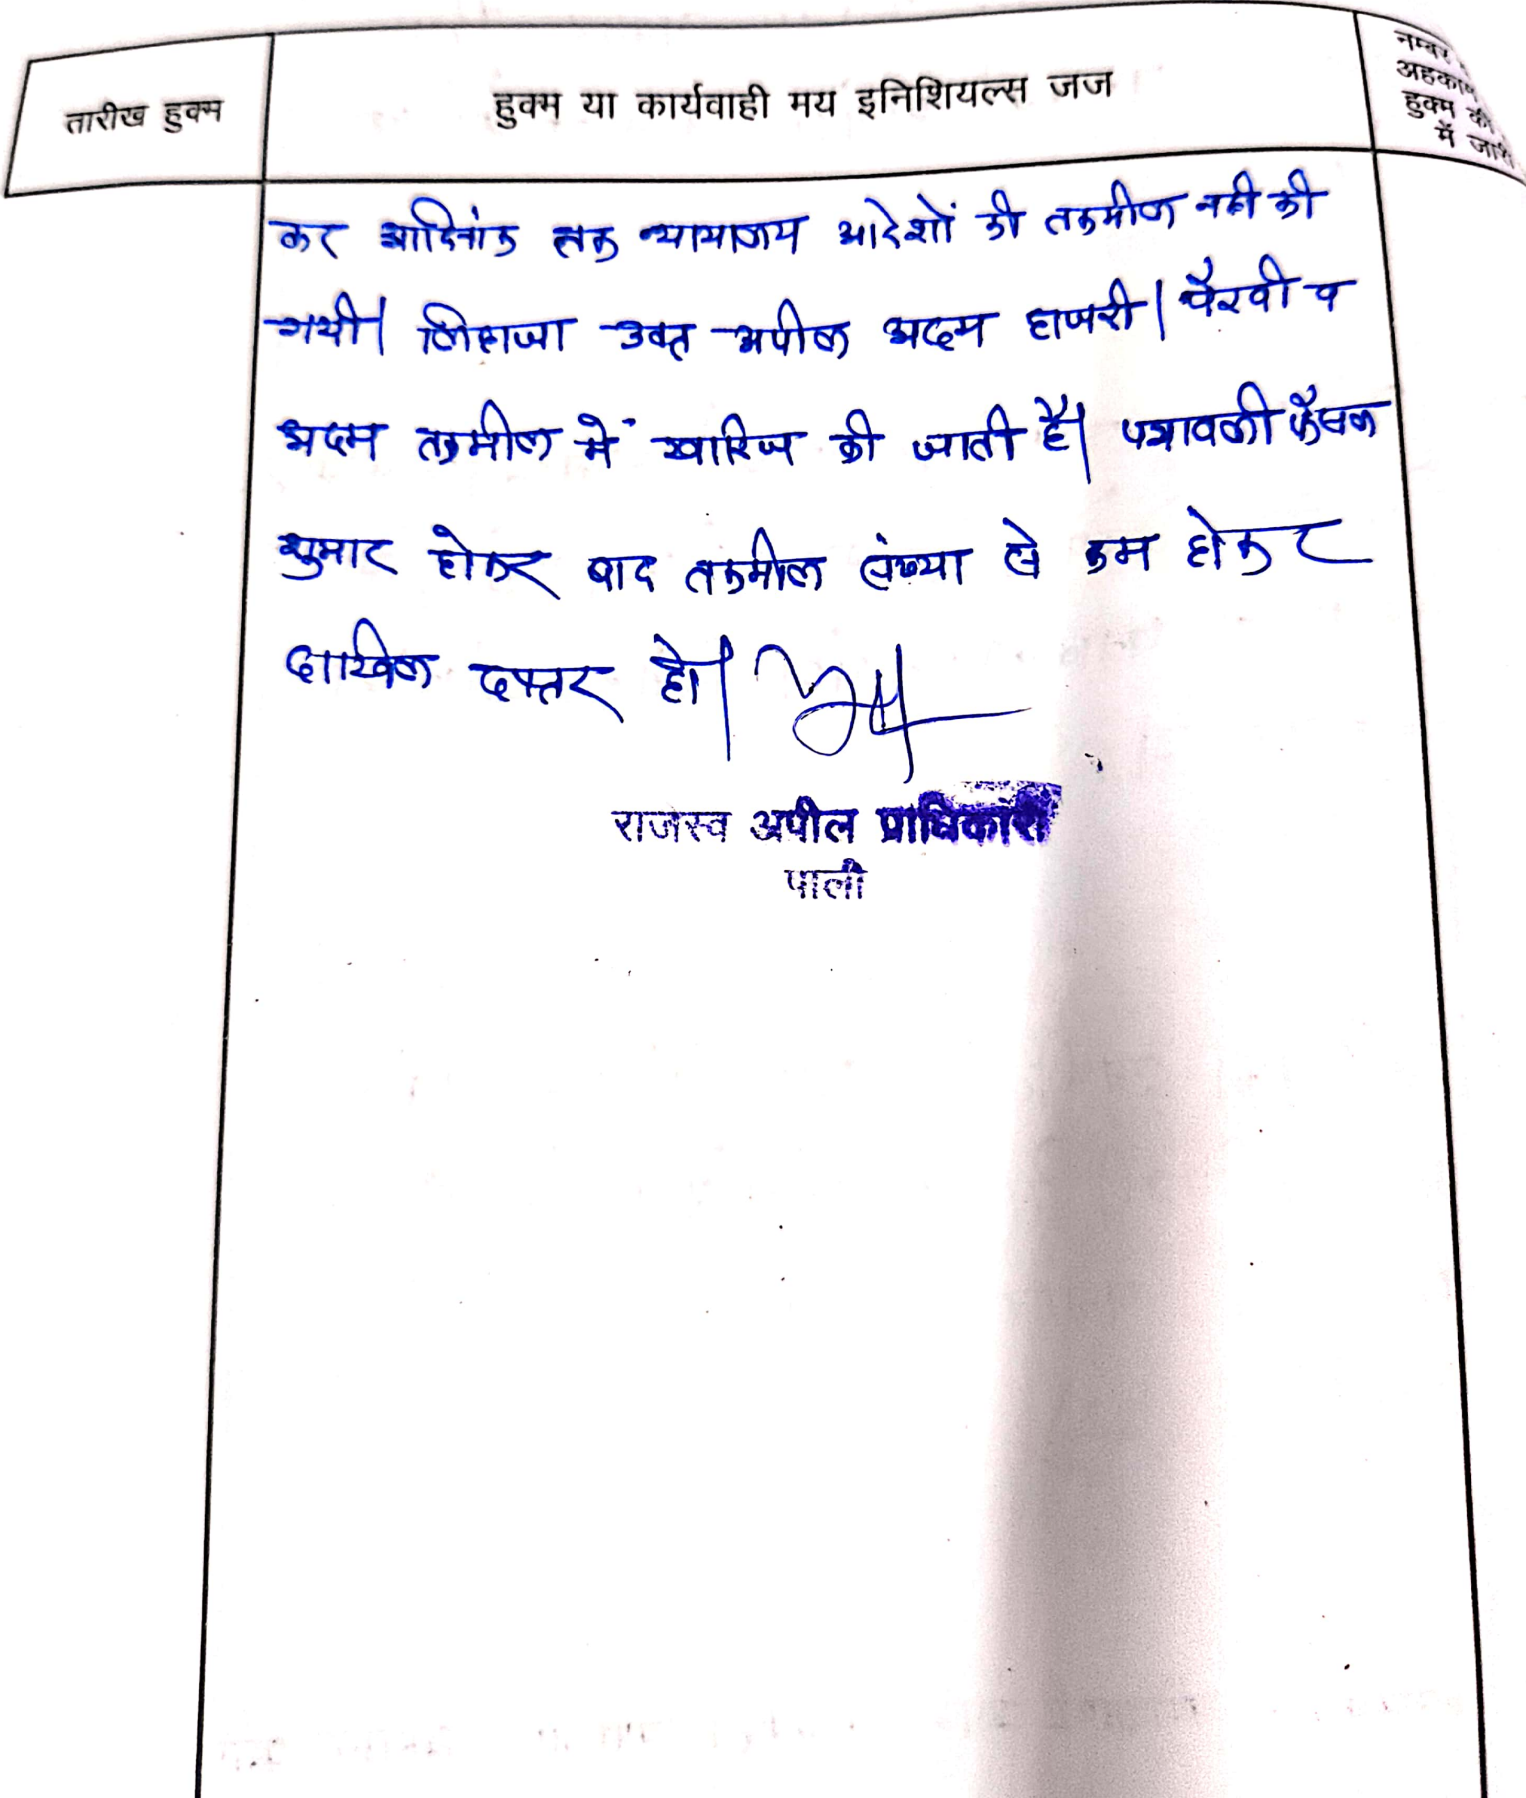 तारीख हुक्म
हुक्म या कार्यवाही मय इनिशियल्स जज
नम्बर
अहकाम
हुक्म की
में जारी
कर आदिनांक तक न्यायालय आदेशों की तकमील नही की
गयी। लिहाजा उक्त अपील अदम हाजरी। पैरवी व
अदम तकमील में खारिज की जाती है। पत्रावली फैसल
शुमार होकर बाद तकमील संख्या से कम होकर
दाखिल दफ्तर हो।
राजस्व अपील प्राधिकारी
पाली